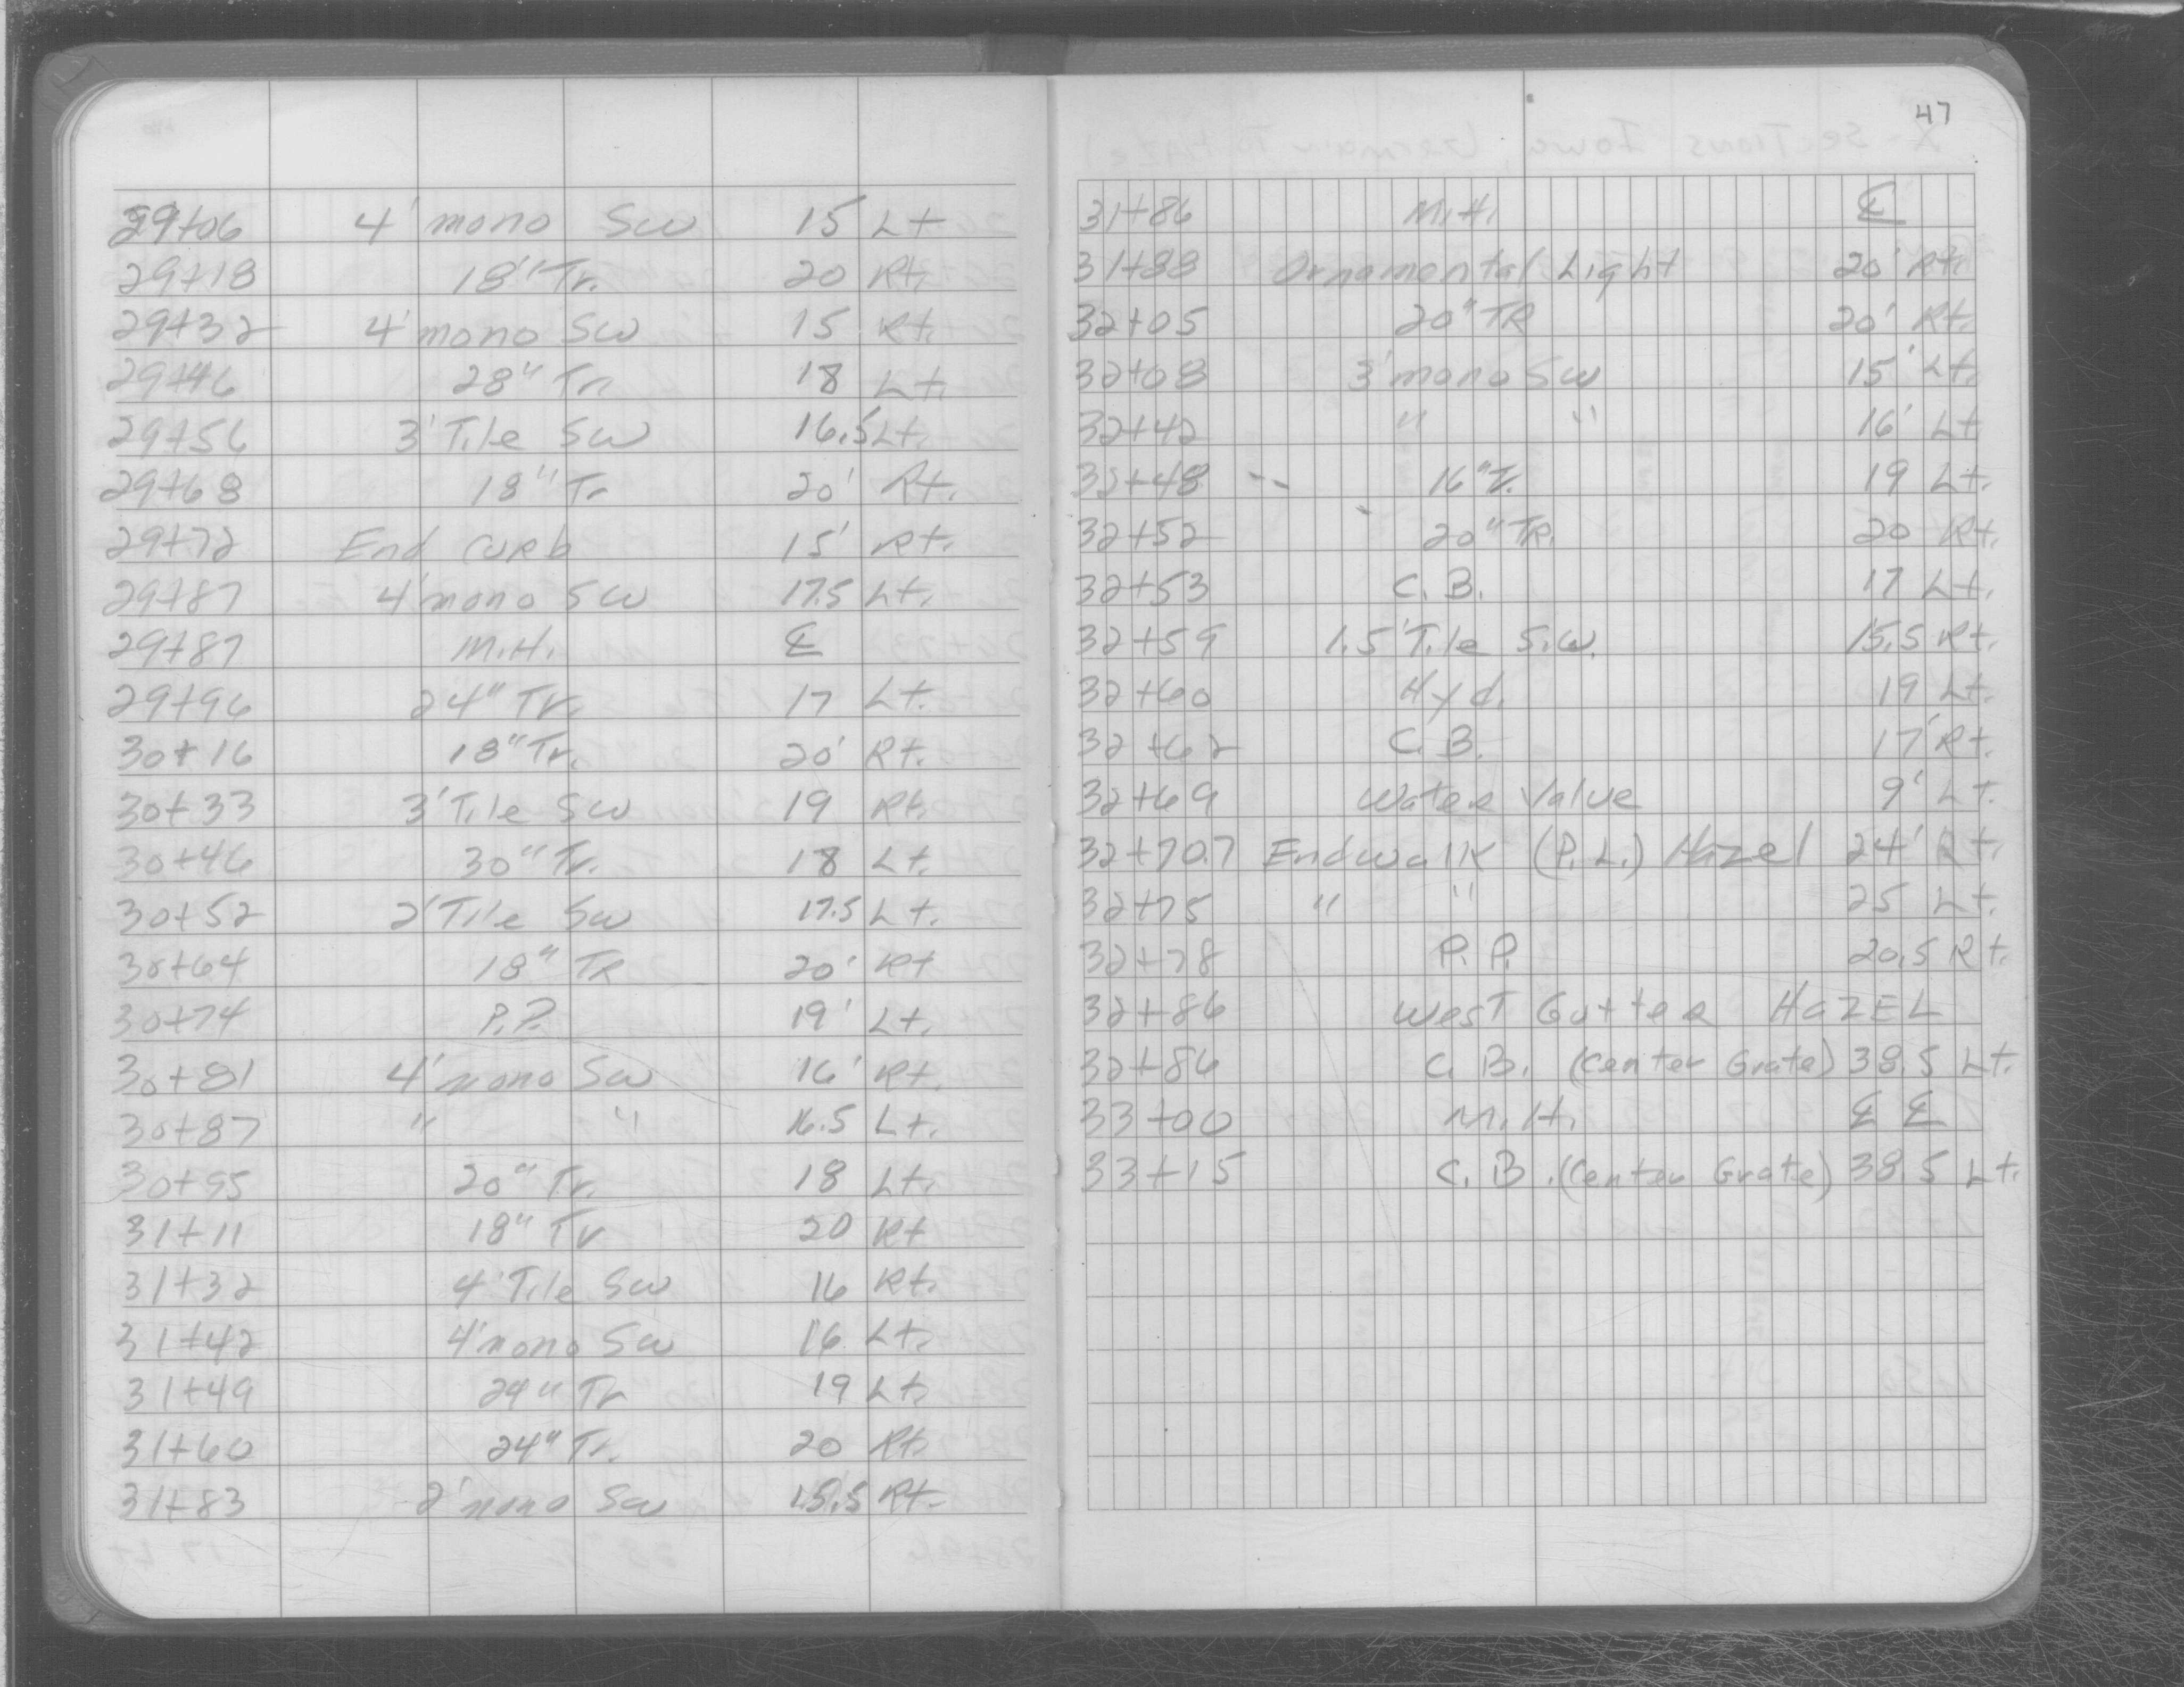 29+06 4' mono Sw 15 Lt
29+18 18" Tr. 20 Rt.
29+32 4' mono Sw 15 Rt.
29+46 28" Tr. 18 Lt.
29+56 3' Tile Sw 16.5 Lt.
29+68 18" Tr 20' Rt.
29+72 End curb 15' Rt.
29+87 4' mono Sw 17.5 Lt.
29+87 M.H. ℄
29+96 24" Tr. 17 Lt.
30+16 18" Tr. 20' Rt.
30+33 3' Tile Sw 19 Rt.
30+46 30" Tr. 18 Lt.
30+52 2' Tile Sw 17.5 Lt.
30+64 18" TR 20' Rt
30+74 P.P. 19' Lt.
30+81 4' mono Sw 16' Rt.
30+87 " " 16.5 Lt.
30+95 20" Tr. 18 Lt.
31+11 18" Tr 20 Rt
31+32 4' Tile Sw 16 Rt.
31+42 4' mono Sw 16 Lt.
31+49 24" Tr 19 Lt.
31+60 24" Tr. 20 Rt.
31+83 2' mono Sw 15.5 Rt.
47
31+86 M.H. ℄
31+88 Ornamental Light 20' Rt.
32+05 20" TR 20' Rt.
32+08 3' mono Sw 15' Lt.
32+42 " " 16' Lt.
32+48 -- 16" Tr. 19 Lt.
32+52 20" TR. 20 Rt.
32+53 C.B. 17 Lt.
32+59 1.5' Tile S.W. 15.5 Rt.
32+60 Hyd. 19 Lt.
32+62 C.B. 17' Rt.
32+69 Water Valve 9' Lt.
32+70.7 Endwalk (P.L.) Hazel 24' Rt.
32+75 " " 25 Lt.
32+78 P.P. 20.5 Rt.
32+86 West Gutter HAZEL
32+86 C.B. (Center Grate) 38.5 Lt.
33+00 M.H. ℄ ℄
33+15 C.B. (Center Grate) 38.5 Lt.